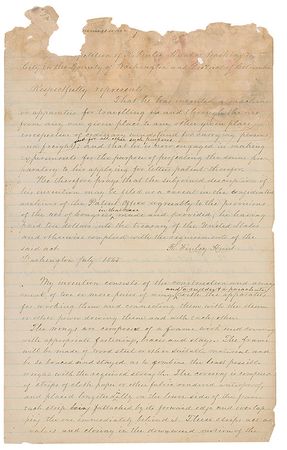 The petition of R. Finley Hunt
City in the County of Washington and District of Columbia
Respectfully represents
That he has invented a machine
or apparatus for travelling in and through the air
from any given place to any other given place
irrespective of ordinary wind and for conveying persons
just for all other such purposes
and freight; and that he is now engaged in making
experiments for the purpose of perfecting the same pre-
paratory to his applying for letters patent therefor.
He therefore prays that the subjoined description of
his invention may be filed as a caveat in the confidential
archives of the Patent Office agreeably to the provisions
in that case
of the act of Congress made and provided; he having
paid ten dollars into the treasury of the United States
and otherwise complied with the requirements of the
said act.
R. Finley Hunt
Washington July
My invention consists of the construction and arrange-
and a rudder & a parachute
ment of two or more pairs of wings with the apparatus
for working them and connecting them with the steam
or other power driving them and with each other.
The wings are composed of a frame work and covering
with appropriate fastening, braces and stays. The frame
will be made of wood steel or other suitable material and
to be braced and stayed as to combine the least possible
weight with the required strength. The covering is composed
of strips of cloth, paper or other fabric rendered waterproof,
and placed lengthwise on the lower side of the frame
each strip being fastened by its forward edge and overlap-
ping the one immediately behind it. These strips act as
valves and closing in the downward motion of the